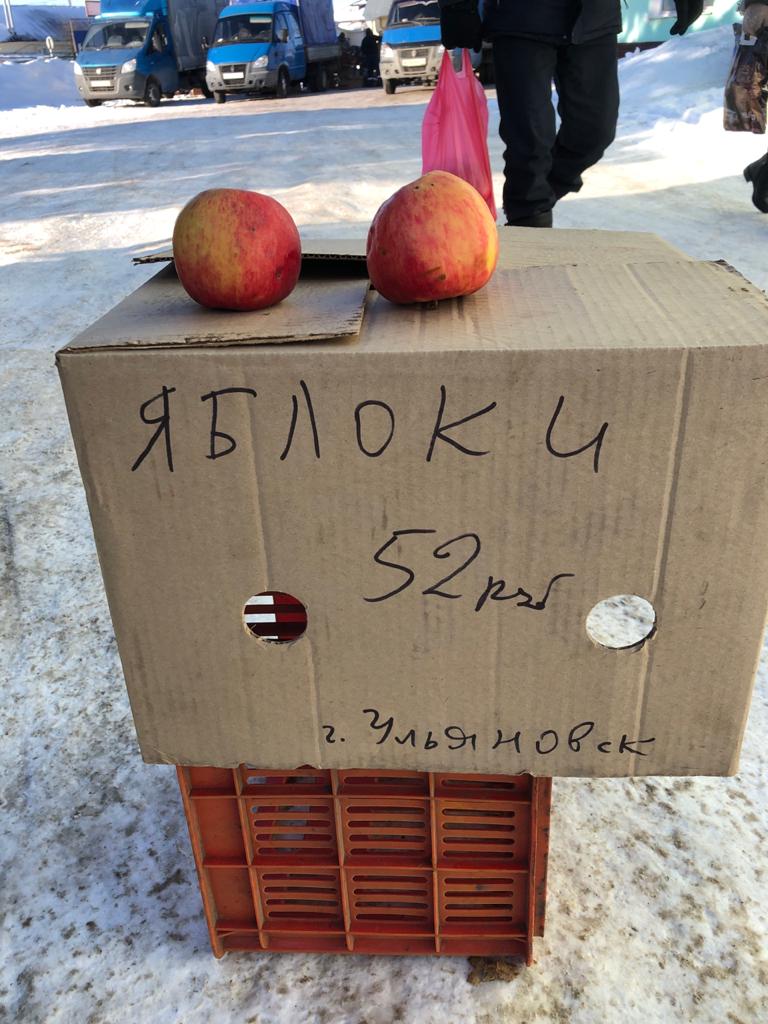 ЯБЛОКИ
52 руб
г. Ульяновск